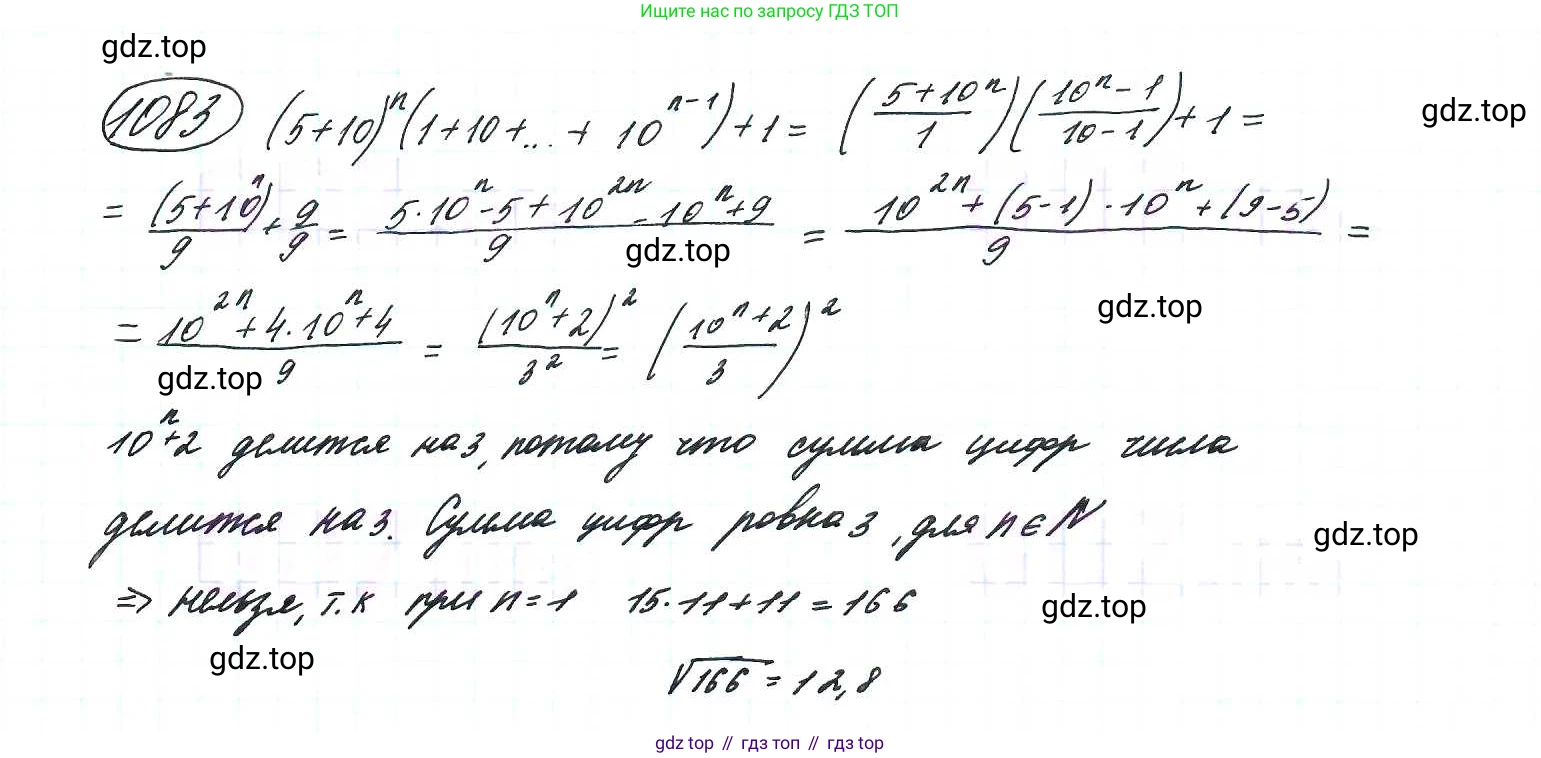 Ищите нас по запросу ГДЗ ТОП
gdz.top
1083 (5+10)^n (1+10+...+ 10^{n-1})+1 = ((5+10^n)/1)((10^n-1)/(10-1))+1 =
gdz.top
= (5+10^n)/9 + 9/9 = (5·10^n-5+10^{2n}-10^n+9)/9 = (10^{2n}+(5-1)·10^n+(9-5))/9 =
gdz.top
gdz.top
= (10^{2n}+4·10^n+4)/9 = (10^n+2)^2/3^2 = ((10^n+2)/3)^2
gdz.top
10^n+2 делится на 3, потому что сумма цифр числа
делится на 3. Сумма цифр ровна 3, для n∈N
gdz.top
=> нельзя, т.к при n=1 15·11+11=166
gdz.top
gdz.top
√166 = 12,8
gdz top // гдз топ // gdz top